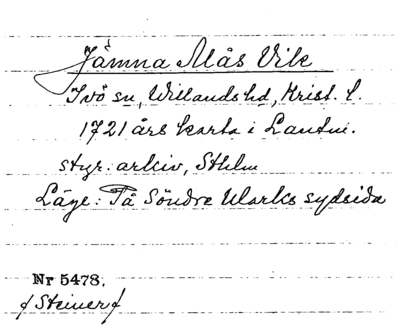 Jämna Mås Vik
Ivö sn, Willands hd, Krist. l.
1721 års karta i Lantm.
styr: arkiv, Sthlm
Läge: På Söndre Marks sydsida
Nr 5478.
/Steiner/